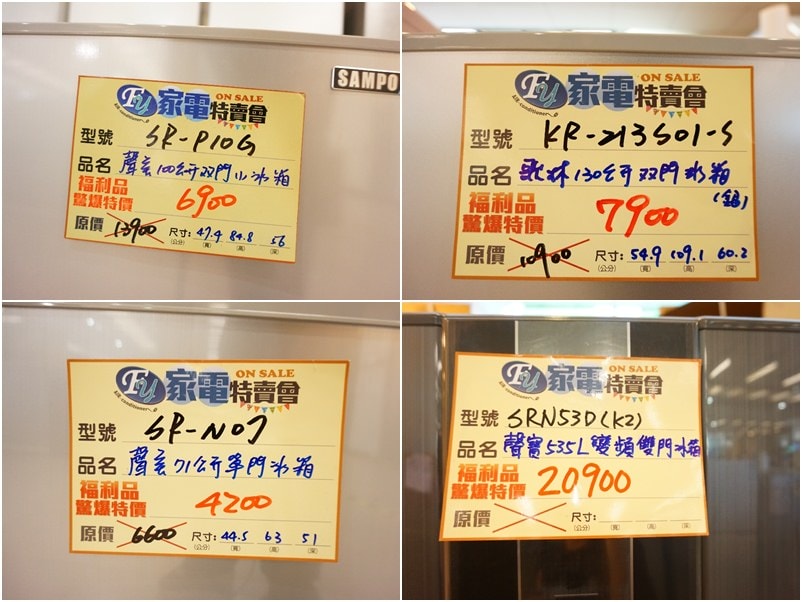 SAMPO
FU 家電特賣會 ON SALE
Air conditioner
型號 SR-P10G
品名 聲宝100公升双門小冰箱
福利品
驚爆特價 6900
原價 13900 尺寸: 47.4 84.8 56
(公分) (寬) (高) (深)
FU 家電特賣會 ON SALE
Air conditioner
型號 KR-213S01-S
品名 歌林130公升双門冰箱
(銀)
福利品
驚爆特價 7900
原價 10900 尺寸: 54.9 109.1 60.2
(公分) (寬) (高) (深)
FU 家電特賣會 ON SALE
Air conditioner
型號 SR-N07
品名 聲宝71公升單門冰箱
福利品
驚爆特價 4200
原價 6600 尺寸: 44.5 63 51
(公分) (寬) (高) (深)
FU 家電特賣會 ON SALE
Air conditioner
型號 SRN53D(K2)
品名 聲寶535L變頻雙門冰箱
福利品
驚爆特價 20900
原價 尺寸:
(公分) (寬) (高) (深)